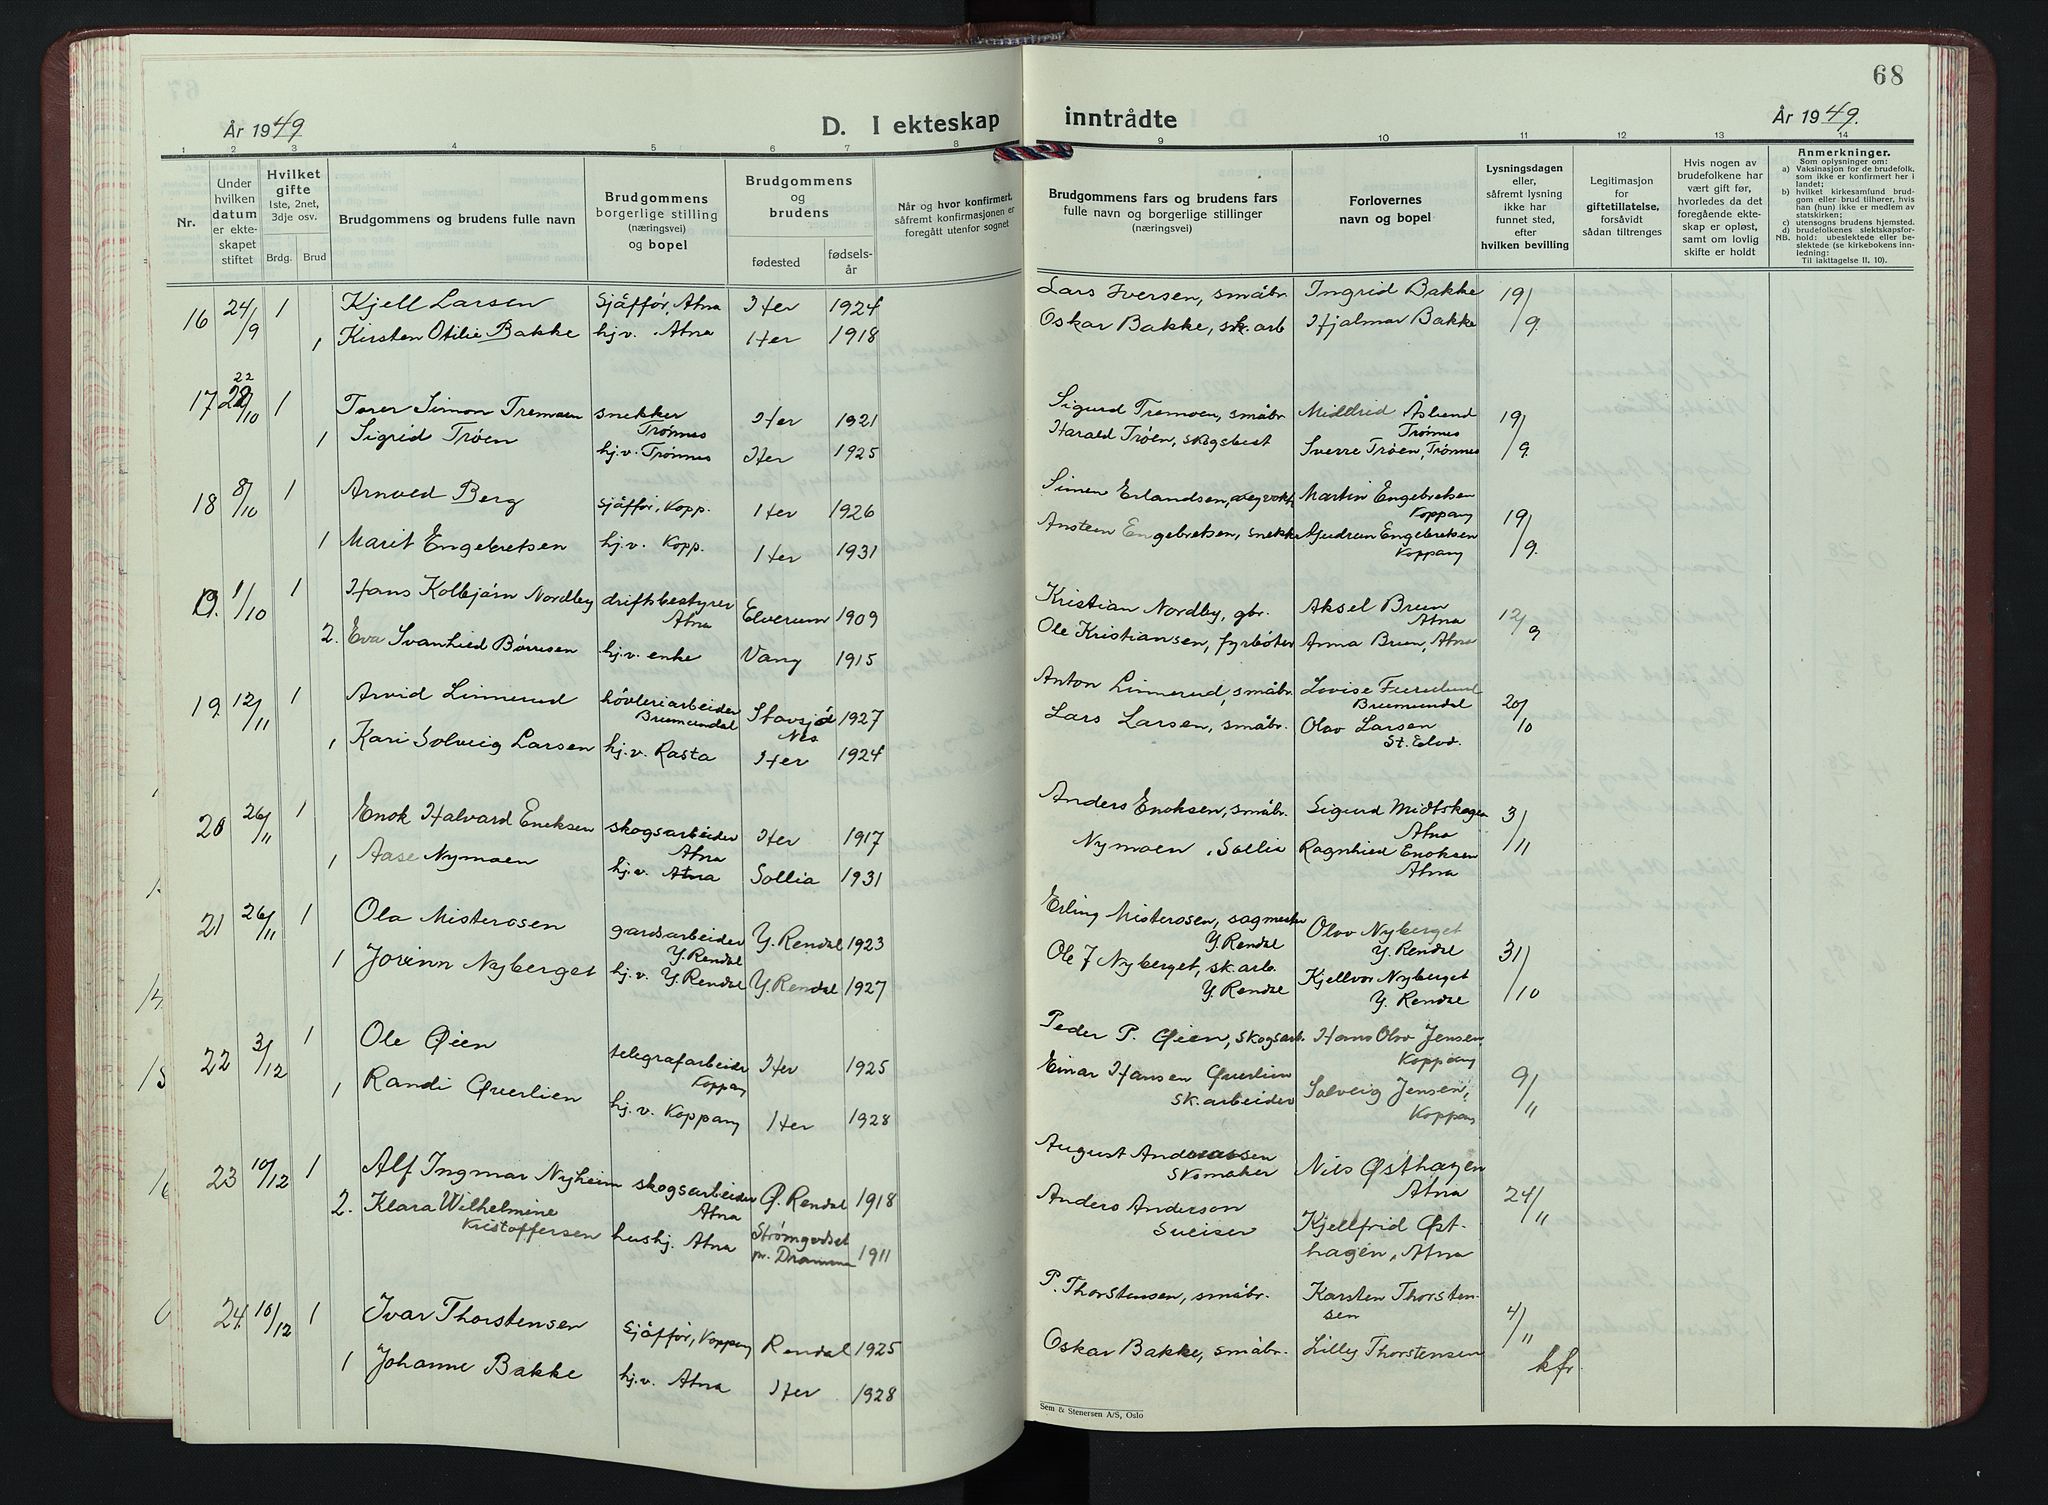 68
År 1949
D. I ekteskap inntrådte
År 1949.
1 2 3 4 5 6 7 8 9 10 11 12 13 14
Nr.
Under hvilken datum er ekteskapet stiftet
Hvilket gifte 1ste, 2net, 3dje osv.
Brdg. Brud
Brudgommens og brudens fulle navn
Brudgommens borgerlige stilling (næringsvei) og bopel
Brudgommens og brudens
fødested
fødselsår
Når og hvor konfirmert, såfremt konfirmasjonen er foregått utenfor sognet
Brudgommens fars og brudens fars fulle navn og borgerlige stillinger (næringsvei)
Forlovernes navn og bopel
Lysningsdagen eller, såfremt lysning ikke har funnet sted, efter hvilken bevilling
Legitimasjon for giftetillatelse, forsåvidt sådan tiltrenges
Hvis nogen av brudefolkene har vært gift før, hvorledes da det foregående ekteskap er opløst, samt om lovlig skifte er holdt
Anmerkninger.
Som oplysninger om:
a) Vaksinasjon for de brudefolk, som ikke er konfirmert her i landet;
b) hvilket kirkesamfund brudgom eller brud tilhører, hvis han (hun) ikke er medlem av statskirken;
c) utensogns brudens hjemsted.
d) brudefolkenes slektskapsforhold: ubeslektede eller beslektede (se kirkebokens innledning:
NB. Til iakttagelse II, 10).
16 24/9 1 Kjell Larsen sjåffør, Atna Her 1924 Lars Iversen, småbr. Ingrid Bakke 19/9
1 Kirsten Otilie Bakke hj.v. Atna Her 1918 Oskar Bakke, sk. arb Hjalmar Bakke
17 22/10 1 Torer Simon Tremoen snekker Trønnes Her 1921 Sigurd Tremoen, småbr. Midtrid Åslund Trønnes 19/9
1 Sigrid Trøen hj.v. Trønnes Her 1925 Harald Trøen, skogsbest Sverre Trøen, Trønnes
18 8/10 1 Arnved Berg sjåffør, Kopp. Her 1926 Simen Erlandsen, vegvokt. Martin Engebretsen Koppang 19/9.
1 Marit Engebretsen hj.v. Kopp. Her 1931 Ansteen Engebretsen, snekker Gudrun Engebretsen Koppang
19. 1/10 1 Hans Kolbjørn Nordby driftsbestyrer Atna Elverum 1909 Kristian Nordby, gbr. Aksel Brun Atna 12/9
2. Eva Svanhied Børresen hj.v. enke Vang 1915 Ole Kristiansen, fyrbøter Anna Brun, Atna
19. 12/11 1 Arvid Linnerud høvleriarbeider Brumundal Stavsjø Nes 1927 Anton Linnerud, småbr. Lovise Furulund Brumundal 20/10
1 Kari Solveig Larsen hj.v. Rasta Her 1924 Lars Larsen, småbr. Olav Larsen St. Elvd.
20 26/11 1 Enok Halvard Enoksen skogsarbeider Atna Her 1917 Anders Enoksen, småbr. Sigurd Midtskogen Atna 3/11
1 Aase Nymoen hj.v. Atna Sollia 1931 Nymoen, Sollia Ragnhied Enoksen Atna
21 26/11 1 Ola Misterosen gardsarbeider Y. Rendal Y. Rendal 1923 Erling Misterosen, sagmester Y. Rendal Olav Nyberget Y. Rendal 31/10
1 Jorinn Nyberget hj.v. Y. Rendal Y. Rendal 1927 Ole J Nyberget, sk. arb. Y. Rendal Kjellvor Nyberget Y. Rendal
22 3/12 1 Ole Øien telegrafarbeider Koppang Her 1925 Peder P. Øien, skogsarb. Hans Olav Jensen Koppang 9/11
1 Randi Øverlien hj.v. Koppang Her 1928 Einar Hansen Øverlien sk. arbeider Solveig Jensen, Koppang
23 10/12 1 Alf Ingmar Nyheim skogsarbeider Atna Ø. Rendal 1918 August Andreassen Skomaker Nils Østhagen Atna 24/11
2. Klara Wilhelmine Kristoffersen hushj. Atna Strømgodset pr. Drammen 1911 Anders Anderson Sveiser Kjellfrid Østhagen, Atna
24. 10/12 1 Ivar Thorstensen sjåffør, Koppang Rendal 1925 P. Thorstensen, småbr. Karsten Thorstensen 4/11
1 Johanne Bakke hj.v. Atna Her 1928 Oskar Bakke, småbr. Lilly Thorstensen kfr.
Sem & Stenersen A/S, Oslo